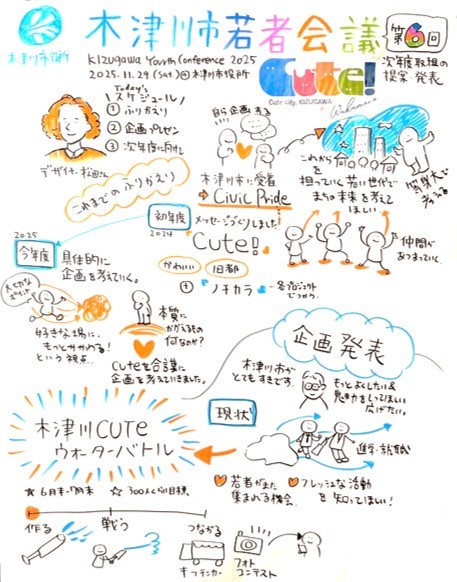 木津川市役所
木津川市若者会議
第6回
KIZUGAWA Youth Conference 2025
2025.11.29 (Sat) @木津川市役所
次年度取組の
提案 発表
Cute!
Cute city, KIZUGAWA
Today's
スケジュール
① ふりかえり
② 企画プレゼン
③ 次年度に向けて
デザイナー 松田さん
これまでのふりかえり
木津川市に愛着
→ Civic Pride
これから
担っていく若い世代で
まちの未来を考えて
ほしい
等身大で
考える
初年度
2024
メッセージづくりしました!
Cute!
かわいい
旧都
+ ノキカラ
仲間が
あつまっていく。
2025
今年度
具体的に
企画を考えていく。
好きな場に、
もっとかかわる!
という視点
本質に
何なのか?
Cuteを合議に
企画を考えていきました。
企画発表
木津川市が
とてもすきです。
もっとよくしたい&
魅力をしってほしい
広げたい。
現状
進学・就職
若者がまた
集まれる機会
フレッシュな活動
を知ってほしい!
木津川CUTE
ウォーターバトル
☆ 6月末~7月末
☆ 300人くらい目標
作る
戦う
つながる
キッチンカー
フォト
コンテスト